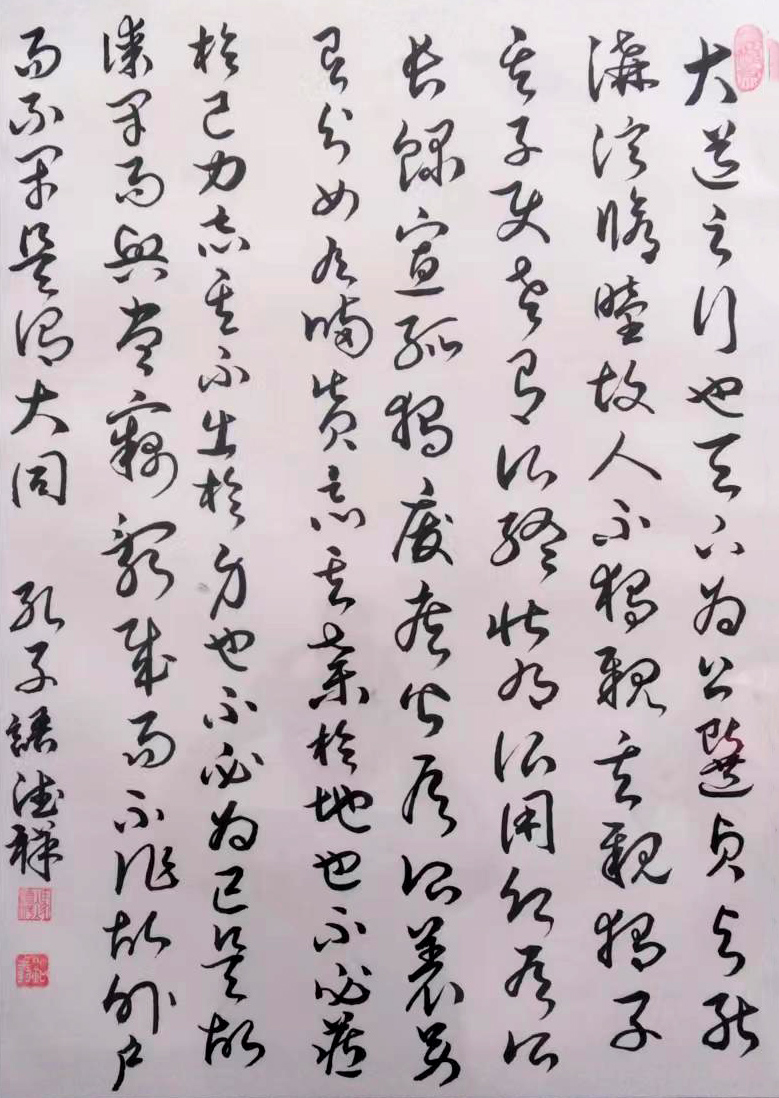 大道之行也天下為公選賢與能
講信脩睦故人不獨親其親獨子
其子使老有所終壯有所用幼有所
長鰥寡孤獨廢疾皆有所養男
有分女有歸貨惡其棄於地也不必藏
於己力惡其不出於身也不必為己是故
謀閉而興盜竊亂賊而不作故外戶
而不閉是謂大同 孔子語德祥